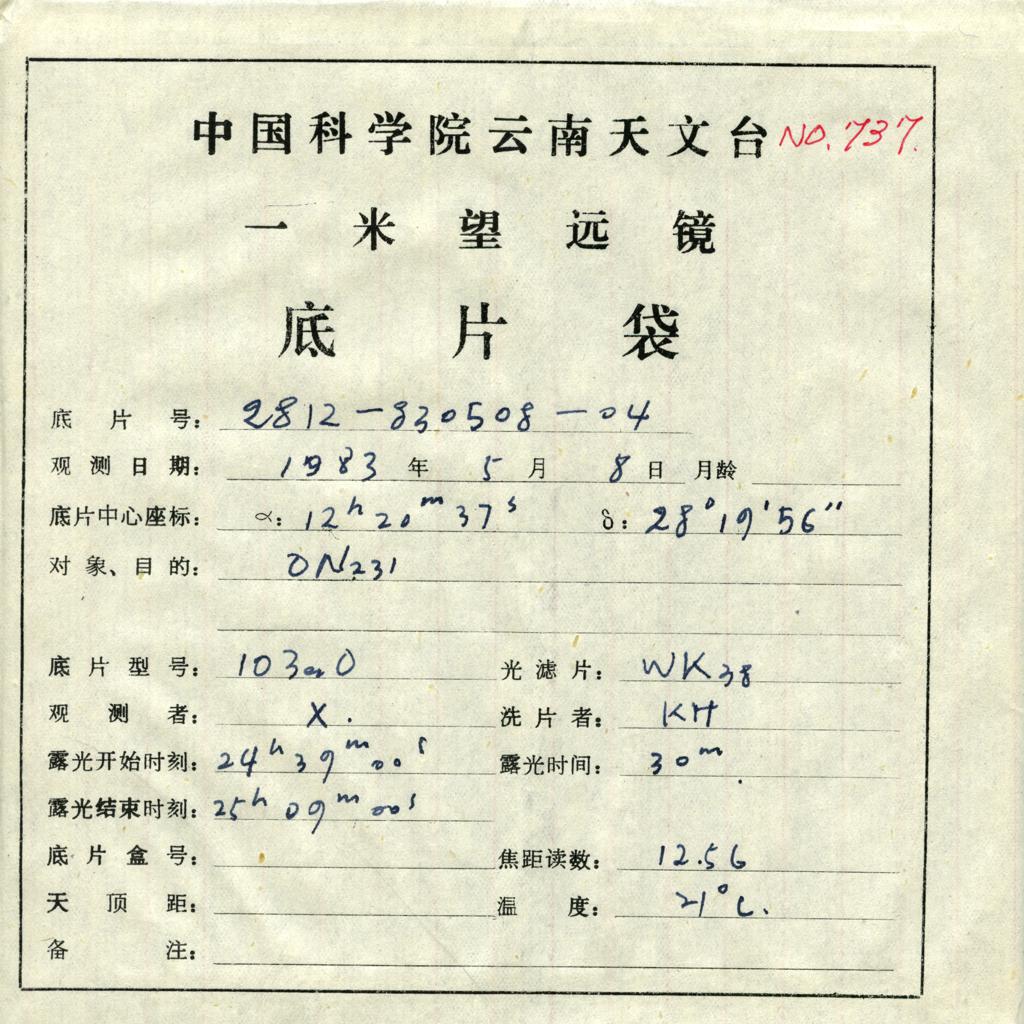 中国科学院云南天文台 NO.737.
一米望远镜
底片袋
底片号: 2812-830508-04
观测日期: 1983年5月8日 月龄
底片中心座标: α: 12h20m37s δ: 28°19'56"
对象、目的: ON231
底片型号: 103aO 光滤片: WK38
观测者: X. 洗片者: KH
露光开始时刻: 24h39m00s 露光时间: 30m.
露光结束时刻: 25h09m00s
底片盒号: 焦距读数: 12.56
天顶距: 温度: 21°C.
备注: